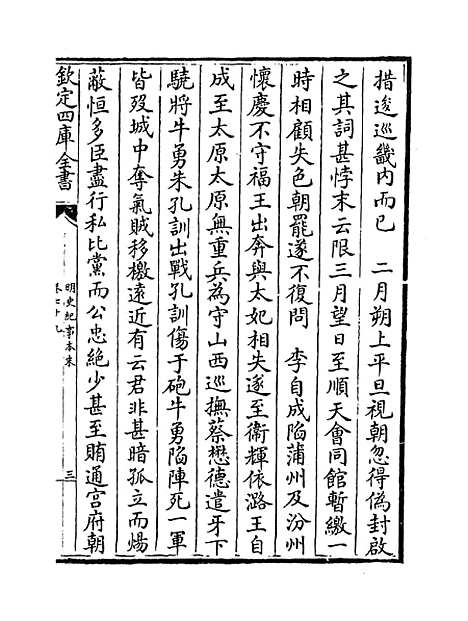 措逡巡畿内而已　二月朔上平旦視朝忽得偽封啟
之其詞甚悖末云限三月望日至順天會同館暫繳一
時相顧失色朝罷遂不復問　李自成陷蒲州及汾州
懷慶不守福王出奔與太妃相失遂至衞輝依潞王自
成至太原太原無重兵為守山西巡撫蔡懋德遣牙下
驍將牛勇朱孔訓出戰孔訓傷于砲牛勇陷陣死一軍
皆殁城中奪氣賊移檄遠近有云君非甚暗孤立而煬
蔽恒多臣盡行私比黨而公忠絶少甚至賄通宫府朝
欽定四庫全書
明史紀事本末
卷七十九
三